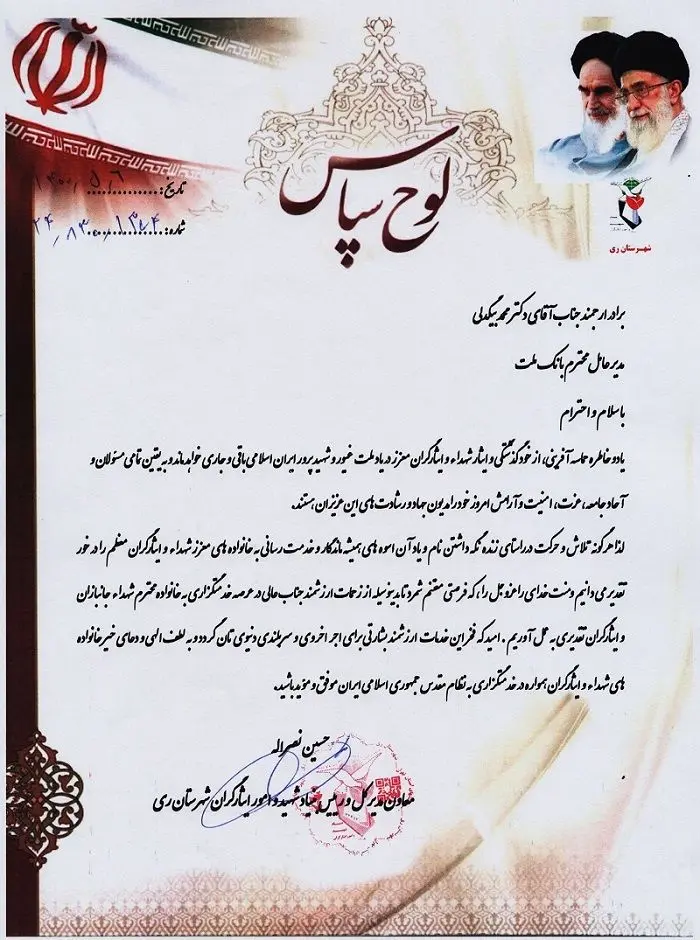 لوح سپاس
تاریخ: ۱۴۰۰٫۵٫۶
شماره: ۲۴٫۸۳٫۰۰٫۱۳۶۴
شهرستان ری
برادر ارجمند جناب آقای دکتر محمد بیگدلی
مدیرعامل محترم بانک ملت
با سلام و احترام
یاد و خاطره حماسه آفرینی، از خودگذشتگی و ایثار شهداء و ایثارگران معزز در یاد ملت غیور و شهیدپرور ایران اسلامی باقی و جاری خواهد ماند و به یقین تمامی مسئولان و
آحاد جامعه، عزت، امنیت و آرامش امروز خود را مدیون جهاد و رشادت های این عزیزان هستند.
لذا هرگونه تلاش و حرکت در راستای زنده نگه داشتن نام و یاد آن اسوه های همیشه ماندگار و خدمت رسانی به خانواده های معزز شهداء و ایثارگران معظم را در خور
تقدیر می دانیم و منت خدای را عزوجل را، که فرصتی مغتنم شمرد تا بدینوسیله از زحمات ارزشمند جنابعالی در عرصه خدمتگزاری به خانواده محترم شهداء جانبازان
و ایثارگران تقدیری به عمل آوریم. امید که فخر این خدمات ارزشمند بشارتی برای اجر اخروی و سربلندی دنیوی تان گردد و به لطف الهی و دعای خیر خانواده
های شهداء و ایثارگران همواره در خدمتگزاری به نظام مقدس جمهوری اسلامی ایران موفق و مؤید باشید.
حسین نصراله
معاون مدیرکل و رییس بنیاد شهید و امور ایثارگران شهرستان ری